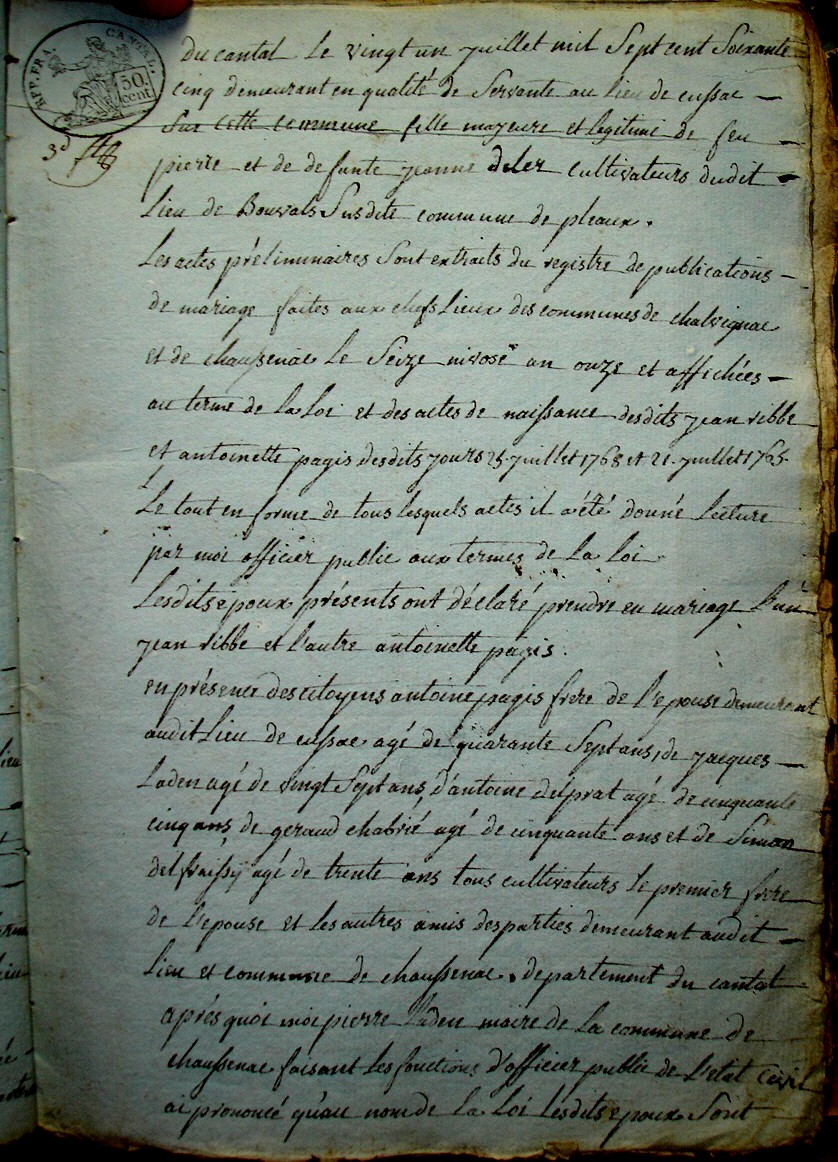 REP. FRA. CANTAL.
50. cent
3d
du cantal le vingt un juillet mil Sept cent Soixante
cinq demeurant en qualité de Servante au lieu de cussac —
Sur cette commune fille majeure et legitime de feu —
pierre et de defunte jeanne deler cultivateurs dudit —
Lieu de Bouvals Susdite commune de pleaux.
Les actes préliminaires Sont extraits du registre de publications —
de mariage faites aux chefs Lieux des communes de chalvignac
et de chaussenac le Seize nivose an onze et affichées —
au terme de la Loi et des actes de naissance desdits jean ribbe
et antoinette pagis desdits jours 25 juillet 1768 et 21. juillet 1765.
Le tout en forme de tous lesquels actes il a été donné lecture
par moi officier public aux termes de la Loi
Lesdits epoux présents ont déclaré prendre en mariage L'un
jean ribbe et l'autre antoinette pagis.
en présence des citoyens antoine pagis frere de l'epouse demeurant
audit Lieu de cussac agé de quarante Sept ans, de jacques —
Laden agé de vingt Sept ans, d'antoine delprat agé de cinquante
cinq ans, de geraud chabrié agé de cinquante ans et de Simon
delfraissy agé de trente ans tous cultivateurs le premier frere
de l'epouse et les autres amis des parties demeurant audit —
Lieu et commune de chaussenac. departement du cantal
aprés quoi moi pierre Laden maire de la commune de
chaussenac faisant les fonctions d'officier public de l'etat civil
ai prononcé qu'au nom de la Loi lesdits epoux Sont